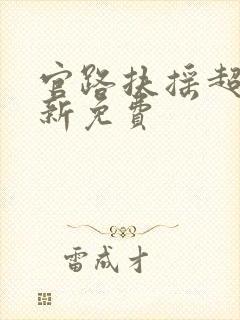 官路扶摇超
新免费
雷成才